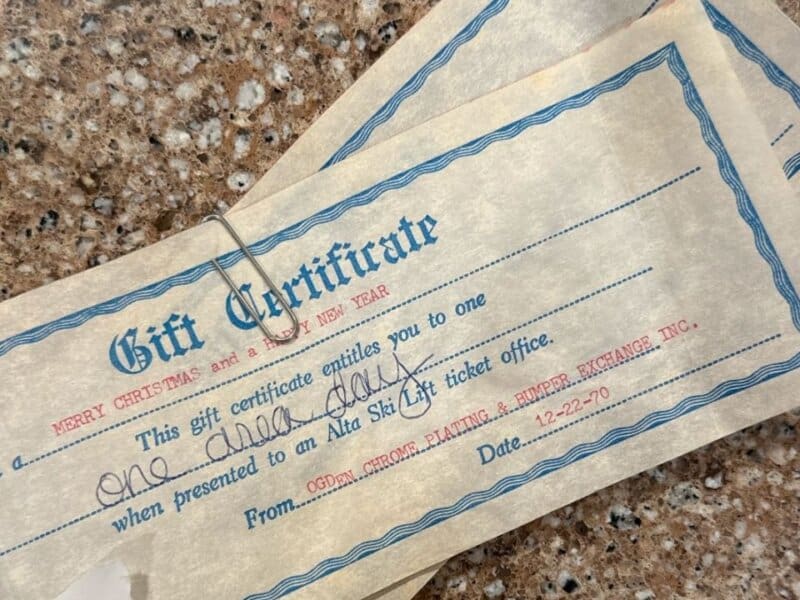 Gift Certificate
MERRY CHRISTMAS and a HAPPY NEW YEAR
a
This gift certificate entitles you to one
one area day
when presented to an Alta Ski Lift ticket office.
From OGDEN CHROME PLATING & BUMPER EXCHANGE INC.
Date 12-22-70